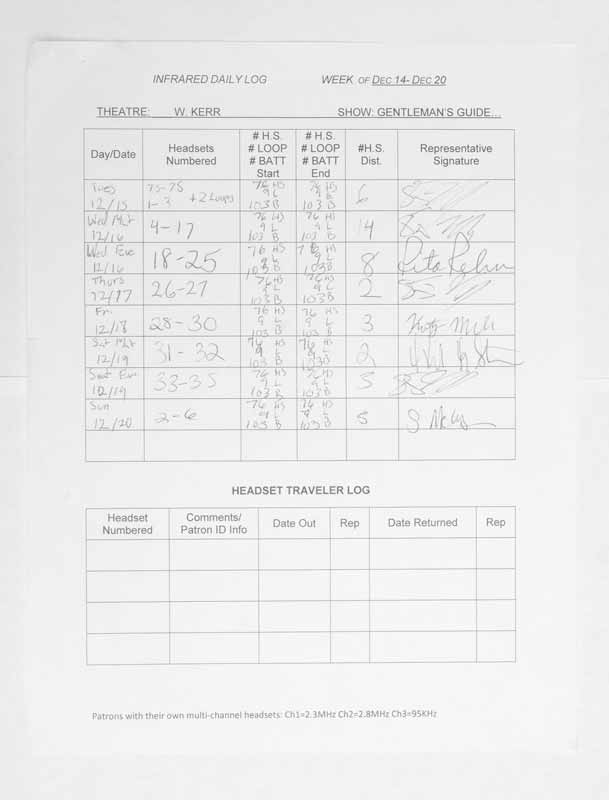 INFRARED DAILY LOG WEEK OF DEC 14- DEC 20
THEATRE: W. KERR SHOW: GENTLEMAN'S GUIDE...
Day/Date Headsets Numbered # H.S. # LOOP # BATT Start # H.S. # LOOP # BATT End #H.S. Dist. Representative Signature
Tues 12/15 1-3 +2 Loops 76 HS 9 L 103 B 76 HS 9 L 103 B 6
Wed Mat 12/16 4-17 76 HS 9 L 103 B 76 HS 9 L 103 B 14
Wed Eve 12/16 18-25 76 HS 9 L 103 B 76 HS 9 L 103 B 8 Rita
Thurs 12/17 26-27 76 HS 9 L 103 B 76 HS 9 L 103 B 2
Fri 12/18 28-30 76 HS 9 L 103 B 76 HS 9 L 103 B 3
Sat Mat 12/19 31-32 76 HS 9 L 103 B 76 HS 9 L 103 B 2
Sat Eve 12/19 33-35 76 HS 9 L 103 B 76 HS 9 L 103 B
Sun 12/20 2-6 76 HS 9 L 103 B 76 HS 9 L 103 B 5
HEADSET TRAVELER LOG
Headset Numbered Comments/ Patron ID Info Date Out Rep Date Returned Rep
Patrons with their own multi-channel headsets: Ch1=2.3MHz Ch2=2.8MHz Ch3=95KHz